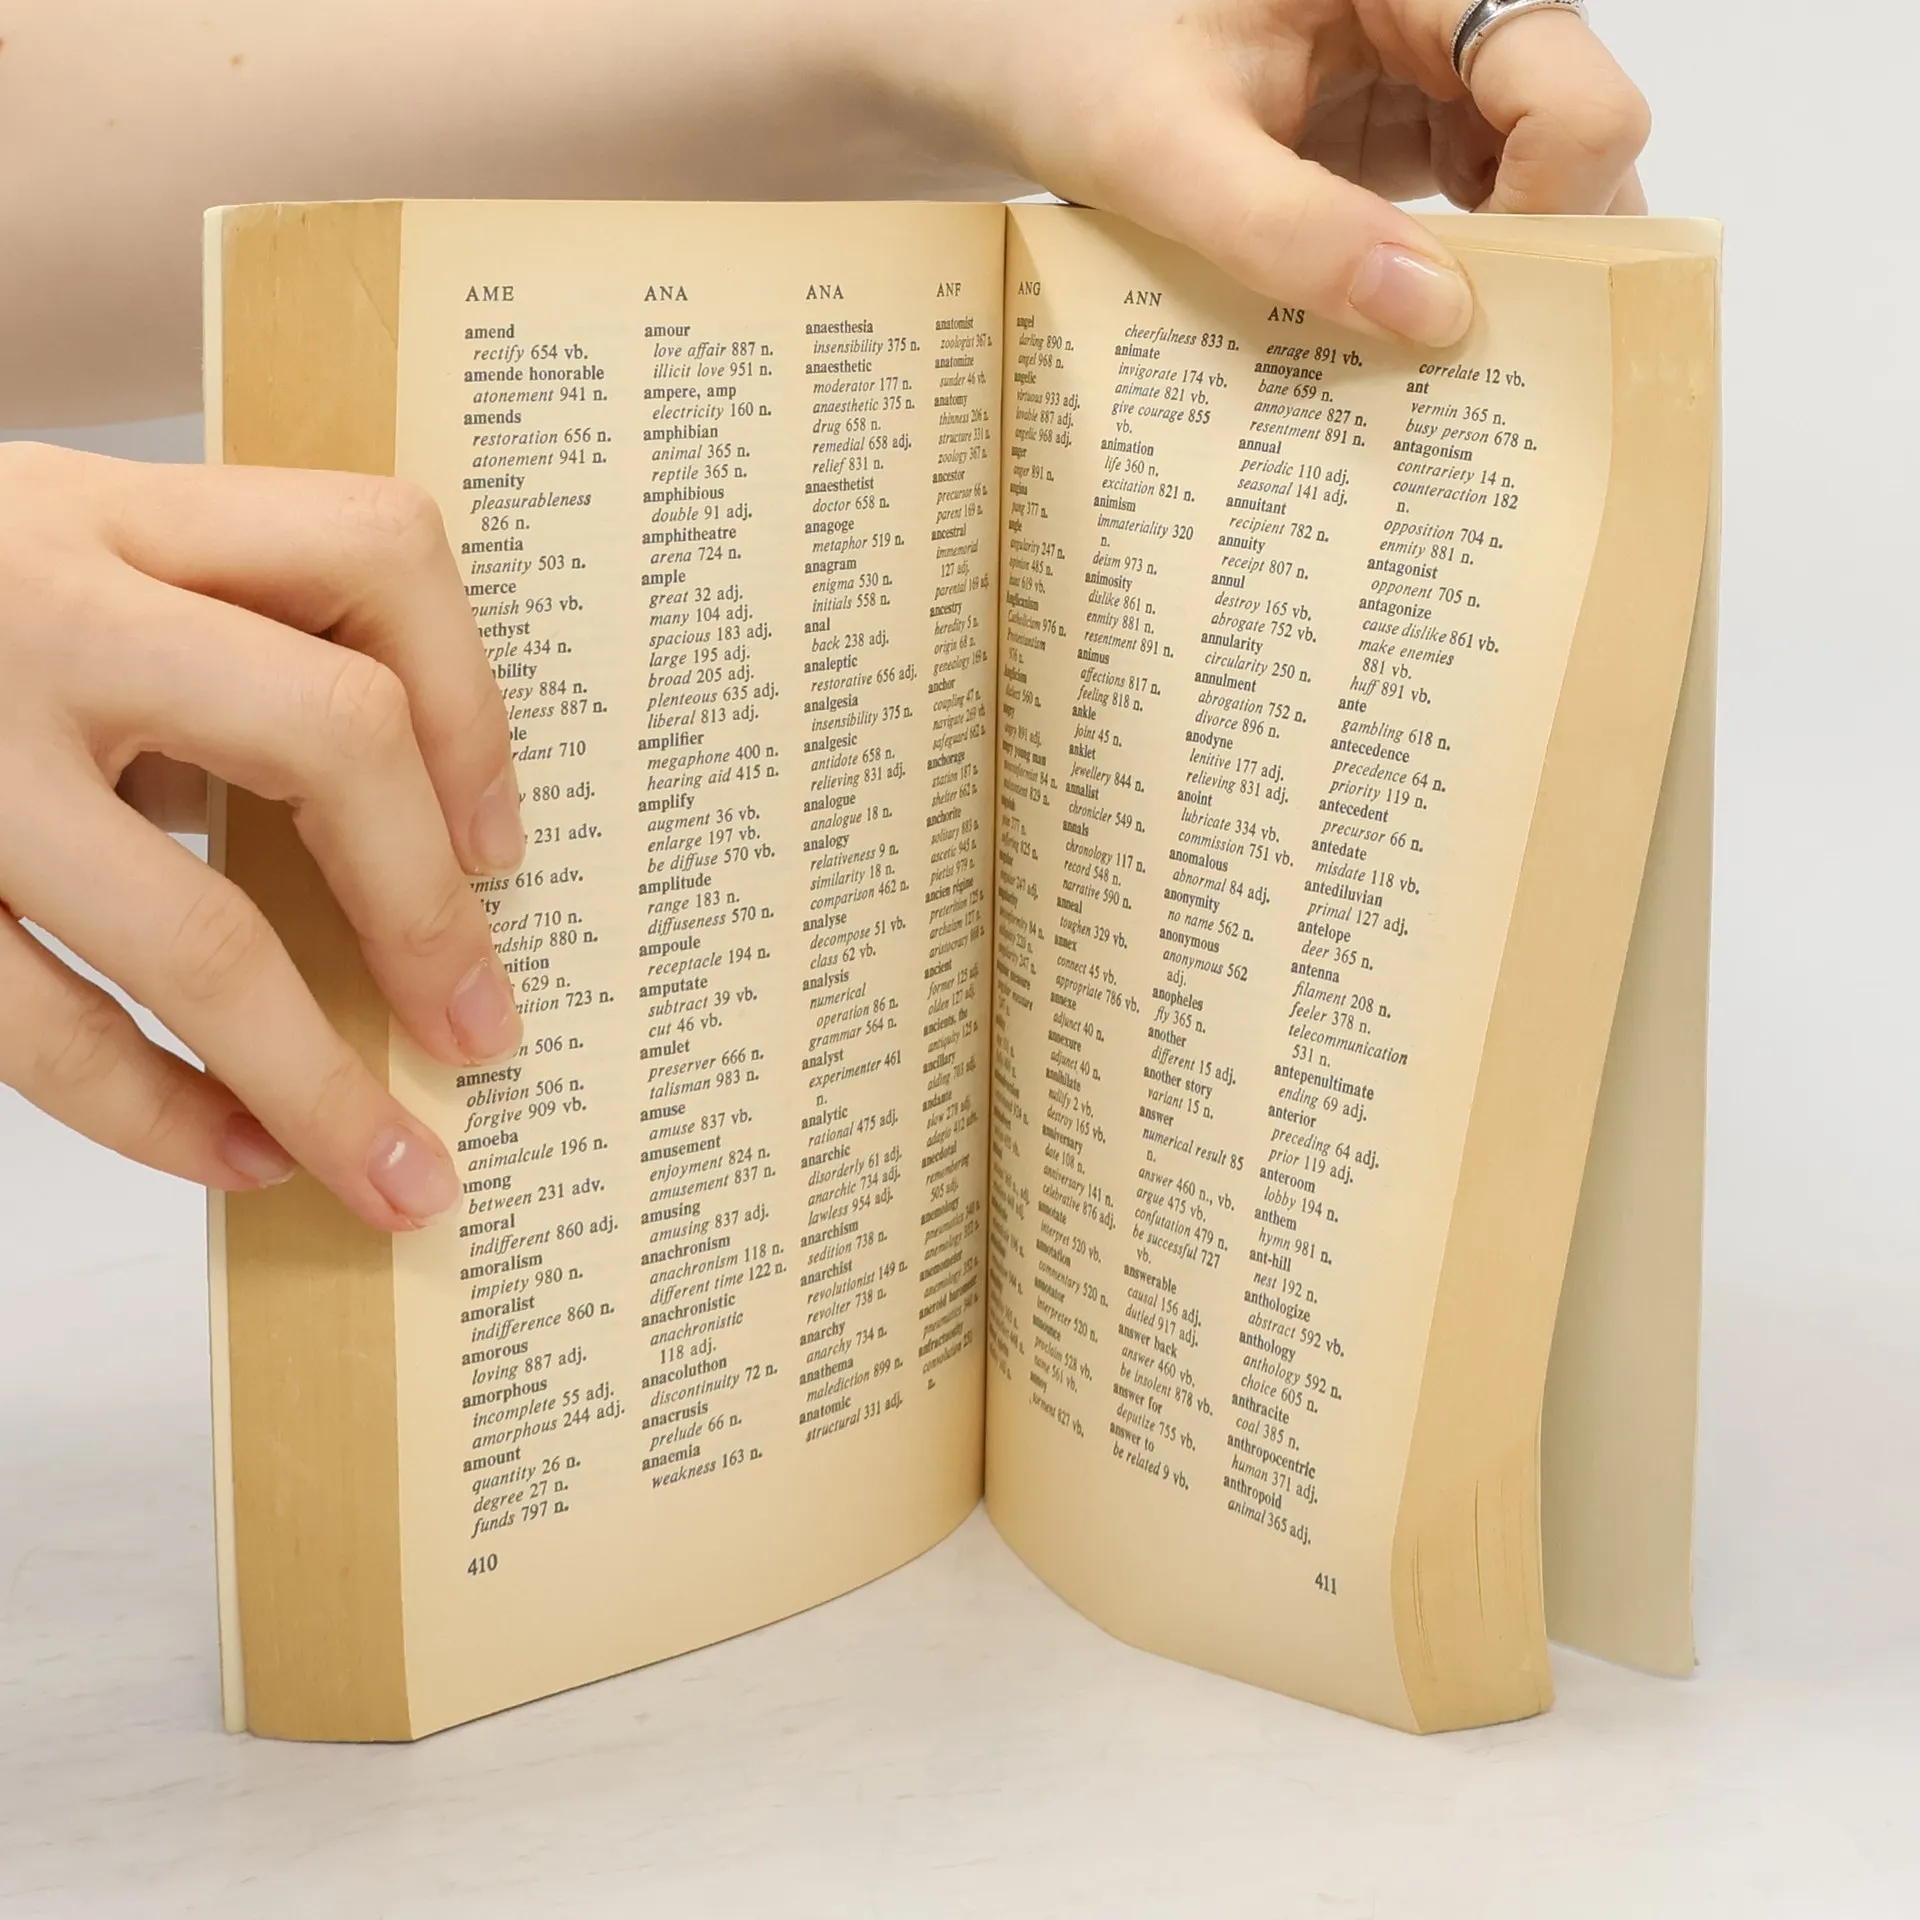 AME
amend
rectify 654 vb.
amende honorable
atonement 941 n.
amends
restoration 656 n.
atonement 941 n.
amenity
pleasurableness
826 n.
amentia
insanity 503 n.
punish 963 vb.
434 n.
884 n.
887 n.
710
880 adj.
231 adv.
616 adv.
710 n.
880 n.
629 n.
723 n.
506 n.
amnesty
oblivion 506 n.
forgive 909 vb.
amoeba
animalcule 196 n.
among
between 231 adv.
amoral
indifferent 860 adj.
amoralism
impiety 980 n.
amoralist
indifference 860 n.
amorous
loving 887 adj.
amorphous
incomplete 55 adj.
amorphous 244 adj.
amount
quantity 26 n.
degree 27 n.
funds 797 n.
410
ANA
amour
love affair 887 n.
illicit love 951 n.
ampere, amp
electricity 160 n.
amphibian
animal 365 n.
reptile 365 n.
amphibious
double 91 adj.
amphitheatre
arena 724 n.
ample
great 32 adj.
many 104 adj.
spacious 183 adj.
large 195 adj.
broad 205 adj.
plenteous 635 adj.
liberal 813 adj.
amplifier
megaphone 400 n.
hearing aid 415 n.
amplify
augment 36 vb.
enlarge 197 vb.
be diffuse 570 vb.
amplitude
range 183 n.
diffuseness 570 n.
ampoule
receptacle 194 n.
amputate
subtract 39 vb.
cut 46 vb.
amulet
preserver 666 n.
talisman 983 n.
amuse
amuse 837 vb.
amusement
enjoyment 824 n.
amusement 837 n.
amusing
amusing 837 adj.
anachronism
anachronism 118 n.
different time 122 n.
anachronistic
anachronistic
118 adj.
anacoluthon
discontinuity 72 n.
anacrusis
prelude 66 n.
anaemia
weakness 163 n.
ANA
anaesthesia
insensibility 375 n.
anaesthetic
moderator 177 n.
anaesthetic 375 n.
drug 658 n.
remedial 658 adj.
relief 831 n.
anaesthetist
doctor 658 n.
anagoge
metaphor 519 n.
anagram
enigma 530 n.
initials 558 n.
anal
back 238 adj.
analeptic
restorative 656 adj.
analgesia
insensibility 375 n.
analgesic
antidote 658 n.
relieving 831 adj.
analogue
analogue 18 n.
analogy
relativeness 9 n.
similarity 18 n.
comparison 462 n.
analyse
decompose 51 vb.
class 62 vb.
analysis
numerical
operation 86 n.
grammar 564 n.
analyst
experimenter 461
n.
analytic
rational 475 adj.
anarchic
disorderly 61 adj.
anarchic 734 adj.
lawless 954 adj.
anarchism
sedition 738 n.
anarchist
revolutionist 149 n.
revolter 738 n.
anarchy
anarchy 734 n.
anathema
malediction 899 n.
anatomic
structural 331 adj.
ANF
anatomist
zoologist 367 n.
anatomize
sunder 46 vb.
anatomy
thinness 206 n.
structure 331 n.
zoology 367 n.
ancestor
precursor 66 n.
parent 169 n.
ancestral
immemorial
127 adj.
parental 169 adj.
ancestry
heredity 5 n.
origin 68 n.
genealogy 169 n.
anchor
coupling 47 n.
navigate 269 vb.
safeguard 662 n.
anchorage
station 187 n.
shelter 662 n.
anchorite
solitary 883 n.
ascetic 945 n.
pietist 979 n.
ancien régime
preterition 125 n.
archaism 127 n.
aristocracy 868 n.
ancient
former 125 adj.
olden 127 adj.
ancients, the
antiquity 125 n.
ancillary
aiding 703 adj.
andante
slow 278 adj.
adagio 412 adv.
anecdotal
remembering
505 adj.
anemology
pneumatics 340 n.
anemology 352 n.
anemometer
anemology 352 n.
aneroid barometer
pneumatics 340 n.
anfractuosity
convolution 251
n.
ANG
angel
darling 890 n.
angel 968 n.
angelic
virtuous 933 adj.
lovable 887 adj.
angelic 968 adj.
anger
anger 891 n.
angina
pang 377 n.
angle
angularity 247 n.
opinion 485 n.
hunt 619 vb.
Anglicanism
Catholicism 976 n.
Protestantism
976 n.
Anglicism
dialect 560 n.
angry
angry 891 adj.
angry young man
nonconformist 84 n.
anguish
pain 377 n.
suffering 825 n.
angular
angular 247 adj.
angularity
angularity 247 n.
angular measure
annoy
torment 827 vb.
ANN
cheerfulness 833 n.
animate
invigorate 174 vb.
animate 821 vb.
give courage 855
vb.
animation
life 360 n.
excitation 821 n.
animism
immateriality 320
n.
deism 973 n.
animosity
dislike 861 n.
enmity 881 n.
resentment 891 n.
animus
affections 817 n.
feeling 818 n.
ankle
joint 45 n.
anklet
jewellery 844 n.
annalist
chronicler 549 n.
annals
chronology 117 n.
record 548 n.
narrative 590 n.
anneal
toughen 329 vb.
annex
connect 45 vb.
appropriate 786 vb.
annexe
adjunct 40 n.
annexure
adjunct 40 n.
annihilate
nullify 2 vb.
destroy 165 vb.
anniversary
date 108 n.
anniversary 141 n.
celebrative 876 adj.
annotate
interpret 520 vb.
annotation
commentary 520 n.
annotator
interpreter 520 n.
announce
proclaim 528 vb.
name 561 vb.
ANS
enrage 891 vb.
annoyance
bane 659 n.
annoyance 827 n.
resentment 891 n.
annual
periodic 110 adj.
seasonal 141 adj.
annuitant
recipient 782 n.
annuity
receipt 807 n.
annul
destroy 165 vb.
abrogate 752 vb.
annularity
circularity 250 n.
annulment
abrogation 752 n.
divorce 896 n.
anodyne
lenitive 177 adj.
relieving 831 adj.
anoint
lubricate 334 vb.
commission 751 vb.
anomalous
abnormal 84 adj.
anonymity
no name 562 n.
anonymous
anonymous 562
adj.
anopheles
fly 365 n.
another
different 15 adj.
another story
variant 15 n.
answer
numerical result 85
n.
answer 460 n., vb.
argue 475 vb.
confutation 479 n.
be successful 727
vb.
answerable
causal 156 adj.
dutied 917 adj.
answer back
answer 460 vb.
be insolent 878 vb.
answer for
deputize 755 vb.
answer to
be related 9 vb.
correlate 12 vb.
ant
vermin 365 n.
busy person 678 n.
antagonism
contrariety 14 n.
counteraction 182
n.
opposition 704 n.
enmity 881 n.
antagonist
opponent 705 n.
antagonize
cause dislike 861 vb.
make enemies
881 vb.
huff 891 vb.
ante
gambling 618 n.
antecedence
precedence 64 n.
priority 119 n.
antecedent
precursor 66 n.
antedate
misdate 118 vb.
antediluvian
primal 127 adj.
antelope
deer 365 n.
antenna
filament 208 n.
feeler 378 n.
telecommunication
531 n.
antepenultimate
ending 69 adj.
anterior
preceding 64 adj.
prior 119 adj.
anteroom
lobby 194 n.
anthem
hymn 981 n.
ant-hill
nest 192 n.
anthologize
abstract 592 vb.
anthology
anthology 592 n.
choice 605 n.
anthracite
coal 385 n.
anthropocentric
human 371 adj.
anthropoid
animal 365 adj.
411